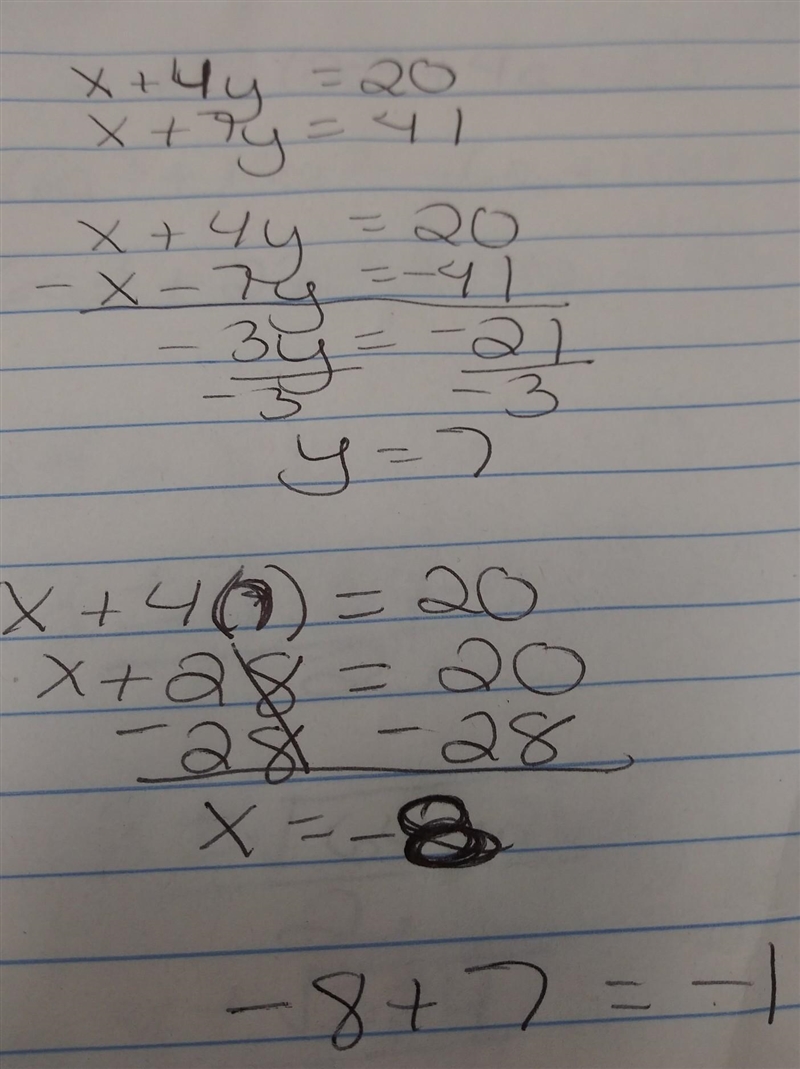 x + 4y = 20
x + 7y = 41
x + 4y = 20
- x - 7y = -41
- 3y = -21
-3 -3
y = 7
x + 4(7) = 20
x + 28 = 20
- 28 - 28
x = -8
-8 + 7 = -1